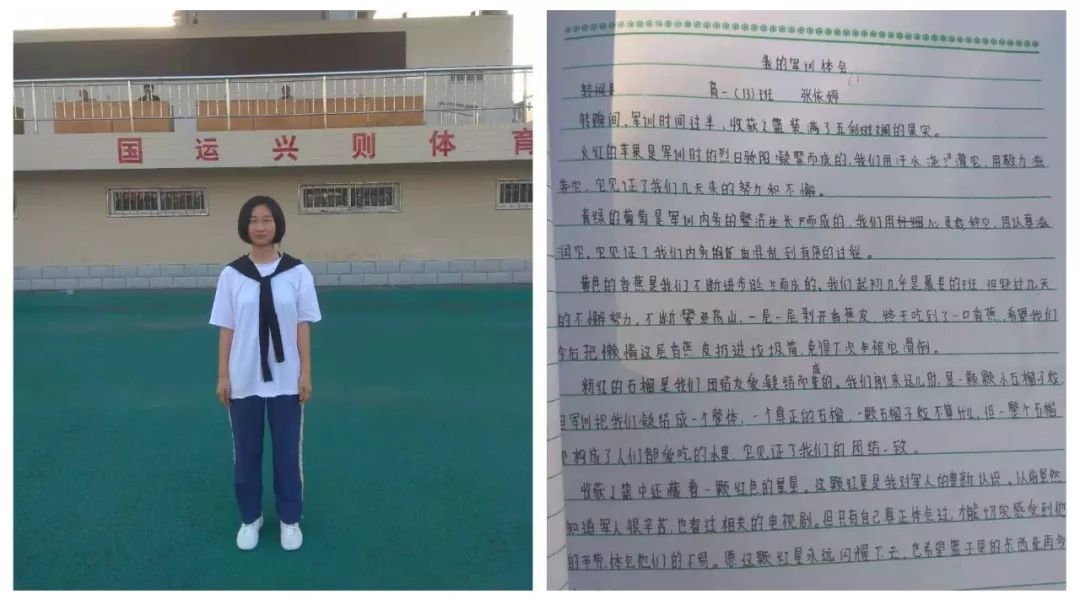 国运兴则体育
我的军训体会
高一(13)班 张依婷
转瞬间,军训时间过半,收获之篮装满了五彩斑斓的果实。
火红的苹果是军训时的烈日骄阳凝聚而成的,我们用汗水浇灌它,用毅力滋
养它,它见证了我们几天来的努力和不懈。
青绿的葡萄是军训内务的整洁生长而成的,我们用细心栽种它,用认真滋
润它,它见证了我们内务由混乱到有序的过程。
黄色的香蕉是我们不断进步诞生而成的,我们起初几乎是最差的班,但经过几天
的不懈努力,不断攀登高山,一层一层剥开香蕉皮,终于吃到了一口香蕉,希望我们
今后把懒惰这层香蕉皮扔进垃圾筒,免得下次再被它滑倒。
粉红的石榴是我们团结友爱凝结而成的。我们刚来这儿时,是一颗颗小石榴子粒
但军训把我们凝结成一个整体,一个真正的石榴,一颗石榴子粒不算什么,但一整个石榴
构成了人们都爱吃的水果,它见证了我们的团结一致。
收获之篮中还藏着一颗红色的星星。这颗红星是我对军人的重新认识。以前虽然
知道军人很辛苦,也看过相关的电视剧。但只有自己真正体会过,才能切实感受到他
们的辛劳,体会他们的不易。愿这颗红星永远闪耀下去,也希望篮子里的东西能再多